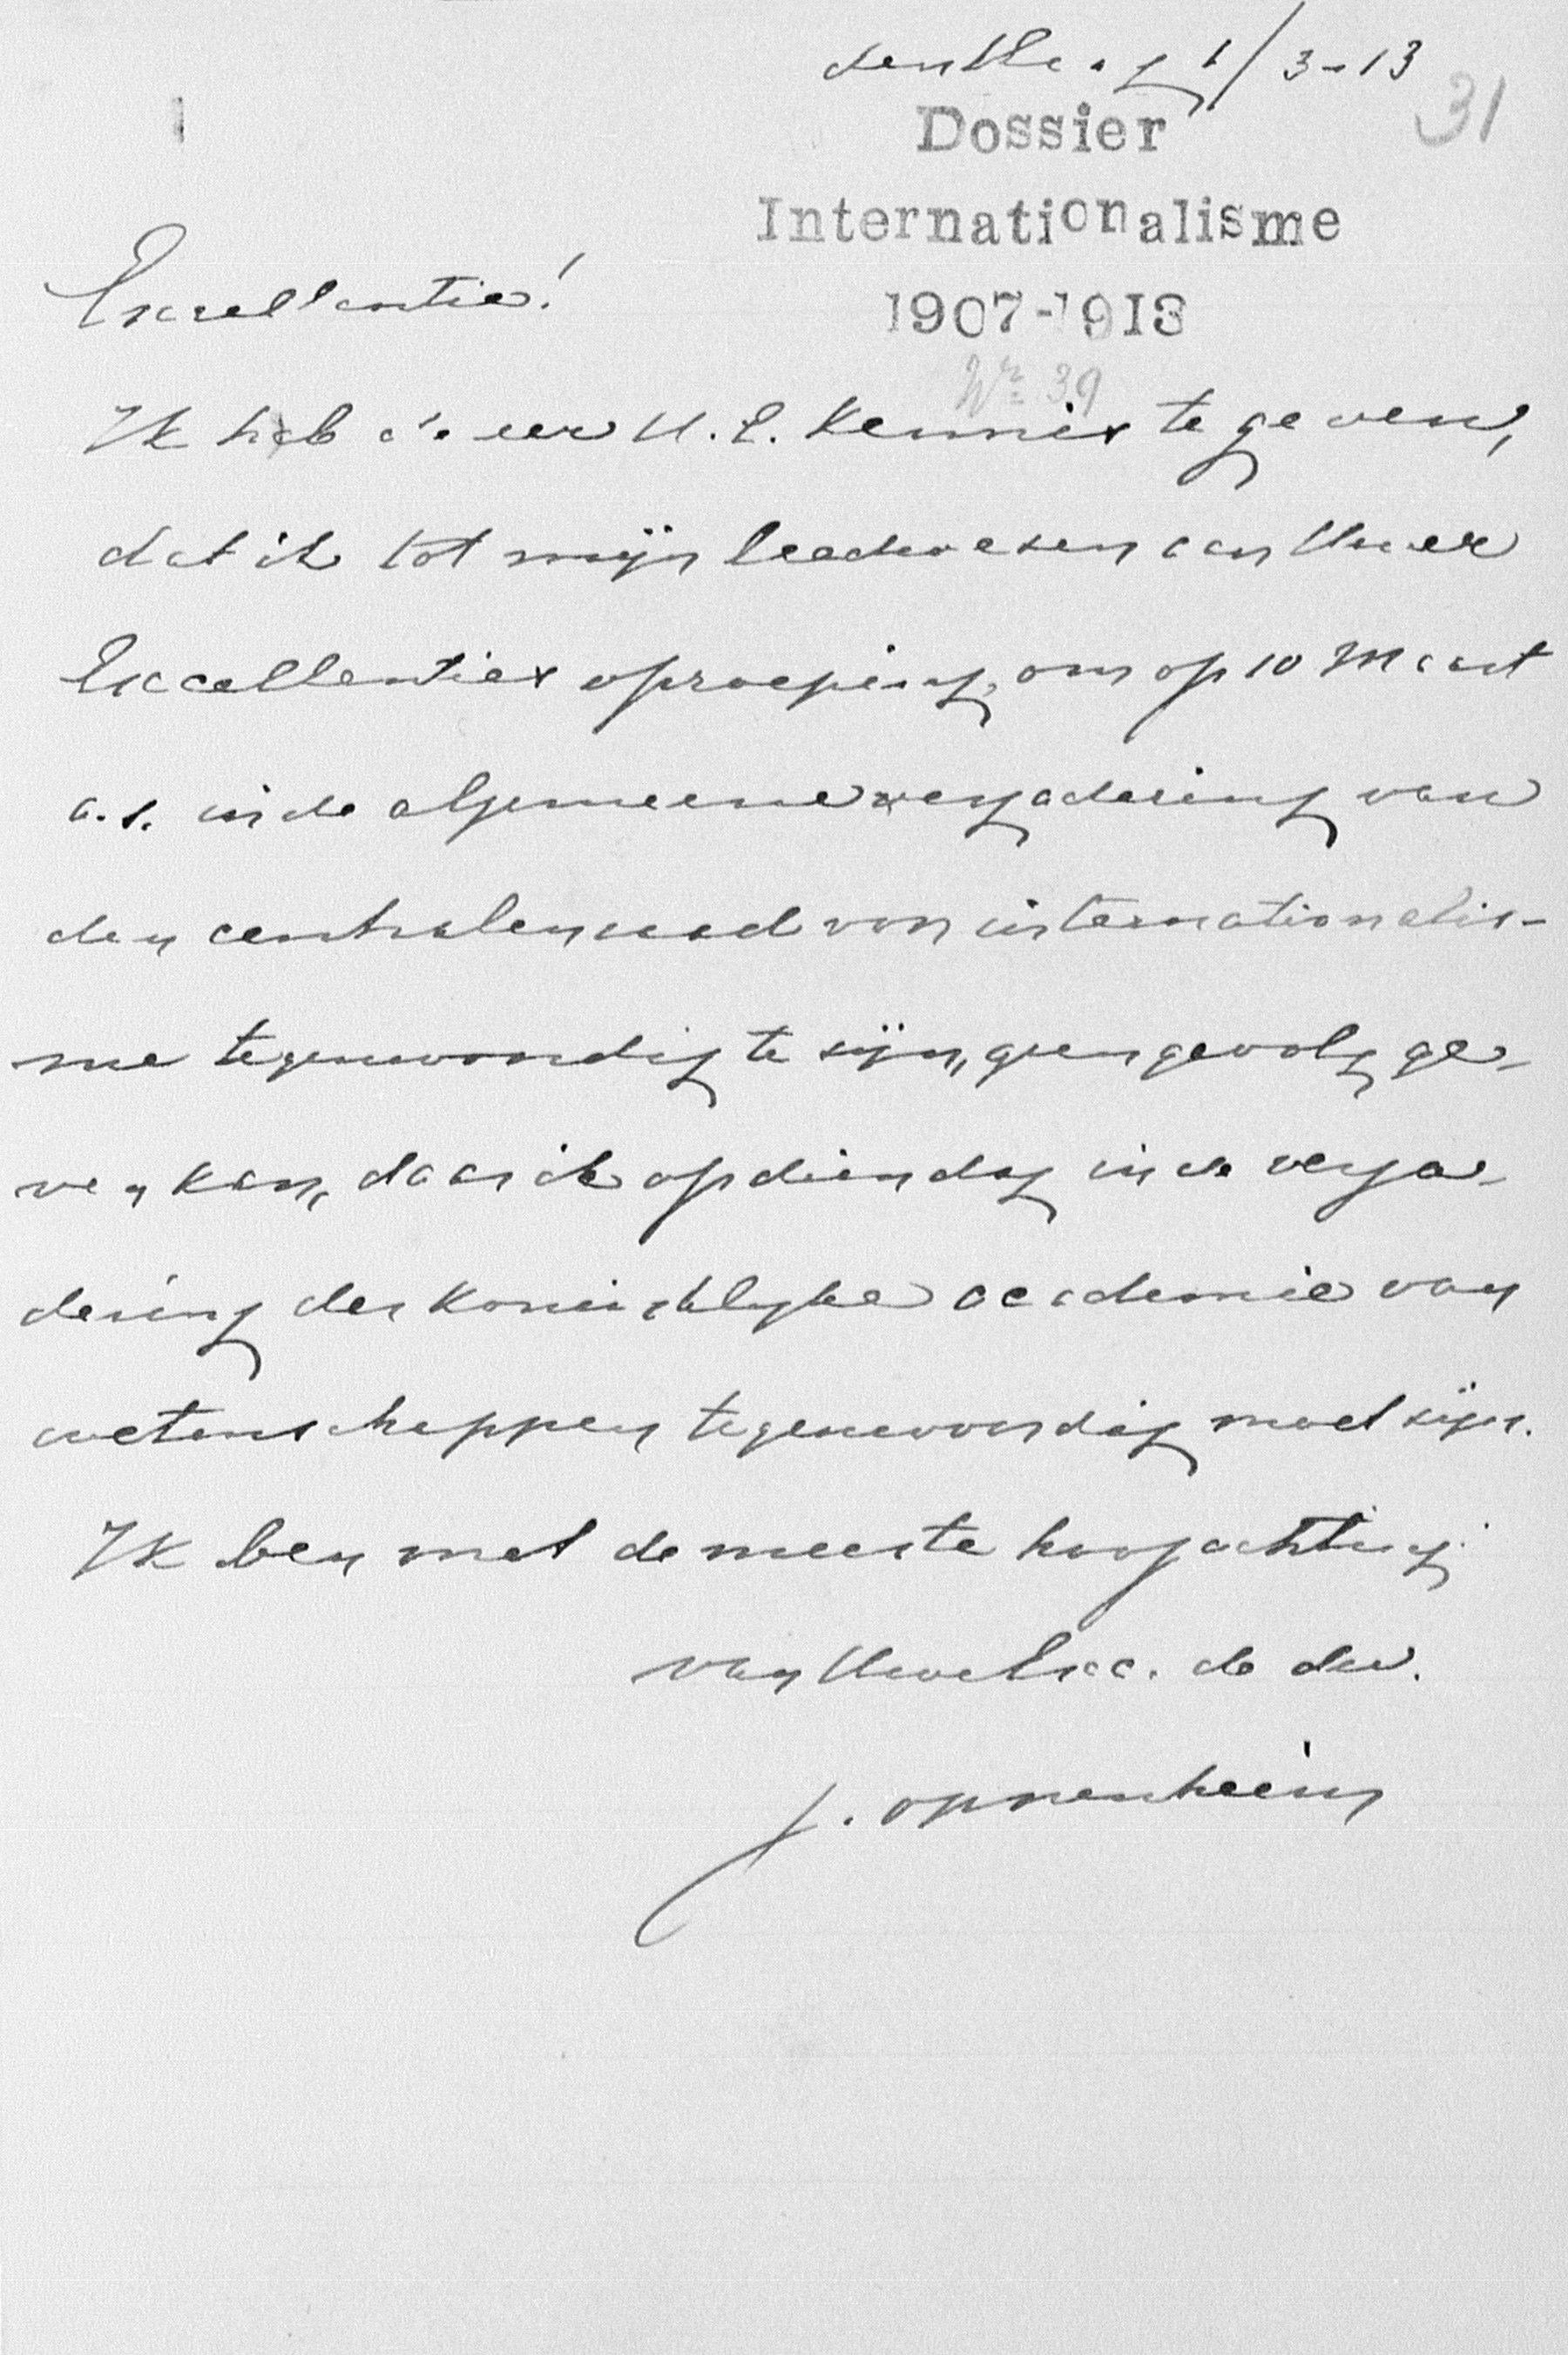 den Haag 1/3-13
31
Dossier
Internationalisme
1907-1913
Nr. 39
Excellentie!
Ik heb de eer U. E. kennis te geven,
dat ik tot mijn leedwezen aan Uwer
Excellenties oproeping, om op 10 Maart
a.s. in de algemeene vergadering van
den centralen raad van internationalis-
me tegenwoordig te zijn, geen gevolg ge-
ven kan, daar ik op dien dag in de verga-
dering der Koninklijke academie van
wetenschappen tegenwoordig moet zijn.
Ik ben met de meeste hoogachting
van Uwe Exc. de dw.
J. Oppenheim